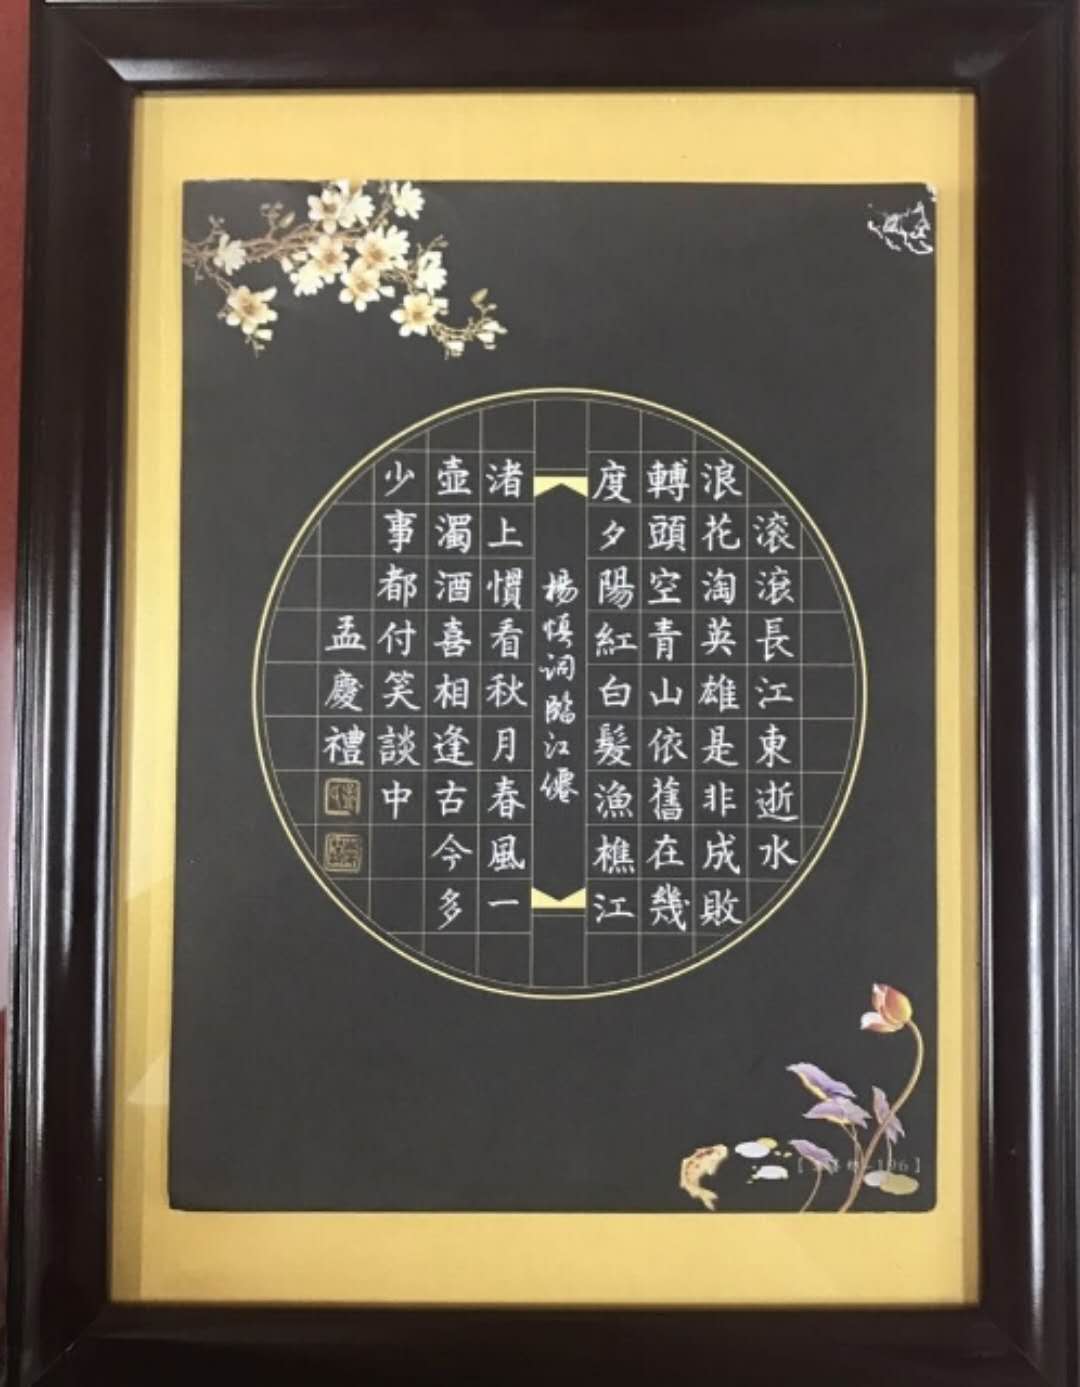 滚滚長江東逝水
浪花淘英雄是非成敗
轉頭空青山依舊在幾
度夕陽紅白髮漁樵江
楊慎詞臨江僊
渚上慣看秋月春風一
壺濁酒喜相逢古今多
少事都付笑談中
孟慶禮